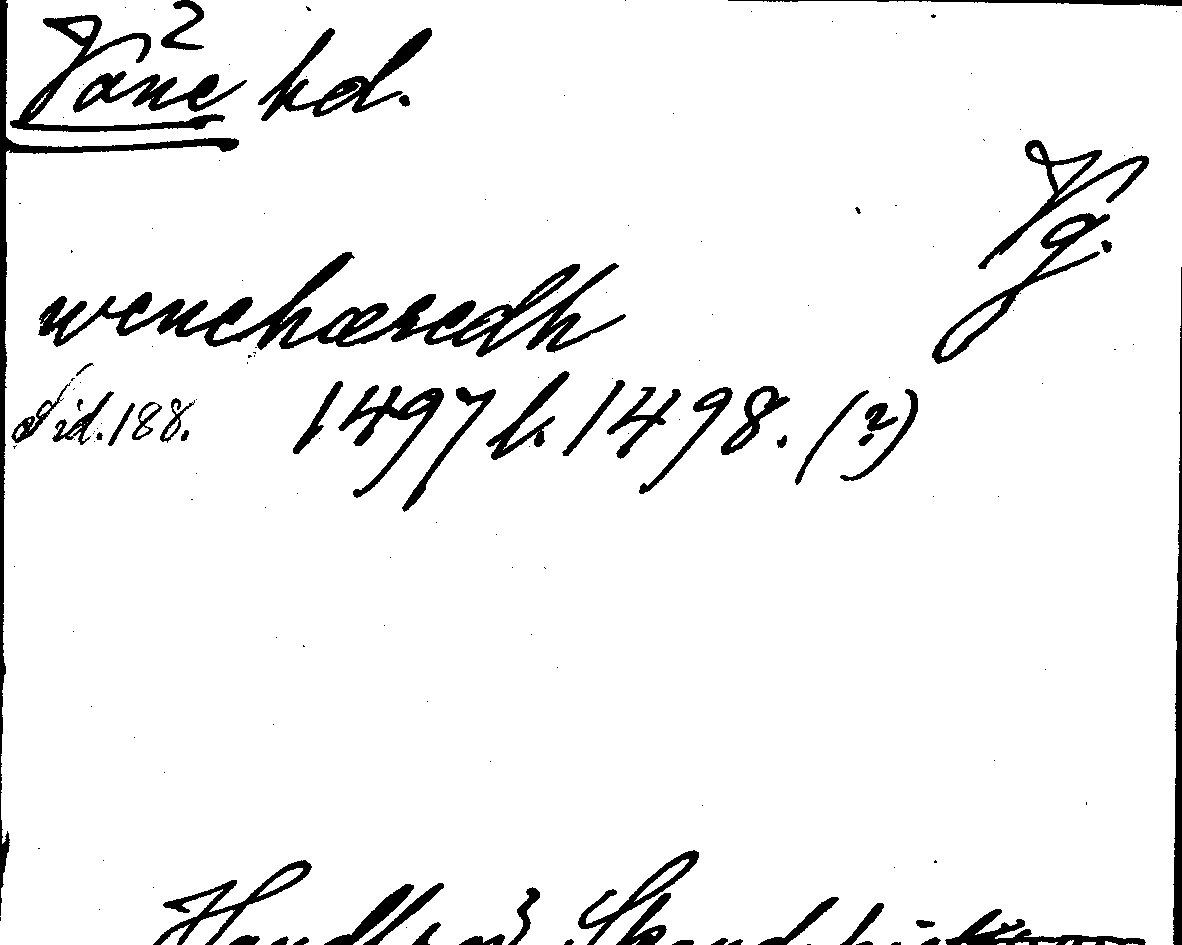 Väne hd.
2
Vg.
wenehæredh
Sid. 188. 1497 l. 1498. (?)
Handl. rör Skand. hist